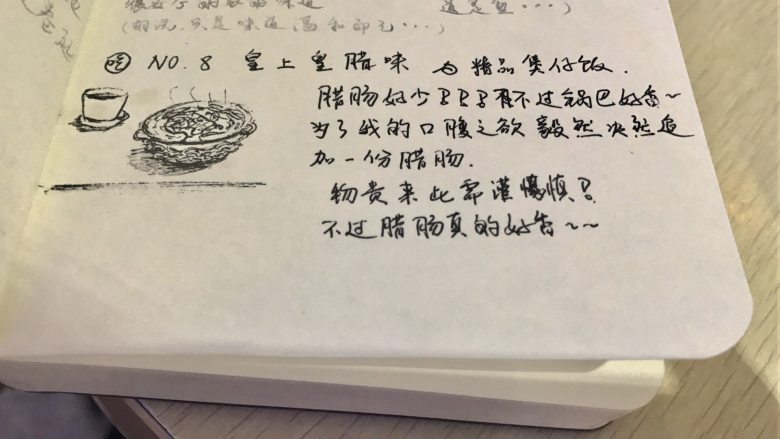 (的说,只是味道温和即已・・・)
吃 NO.8 皇上皇腊味 与精品煲仔饭.
腊肠好少 不过锅巴好香~
为了我的口腹之欲毅然决然追
加一份腊肠.
物贵来此需谨慎?
不过腊肠真的好香~~